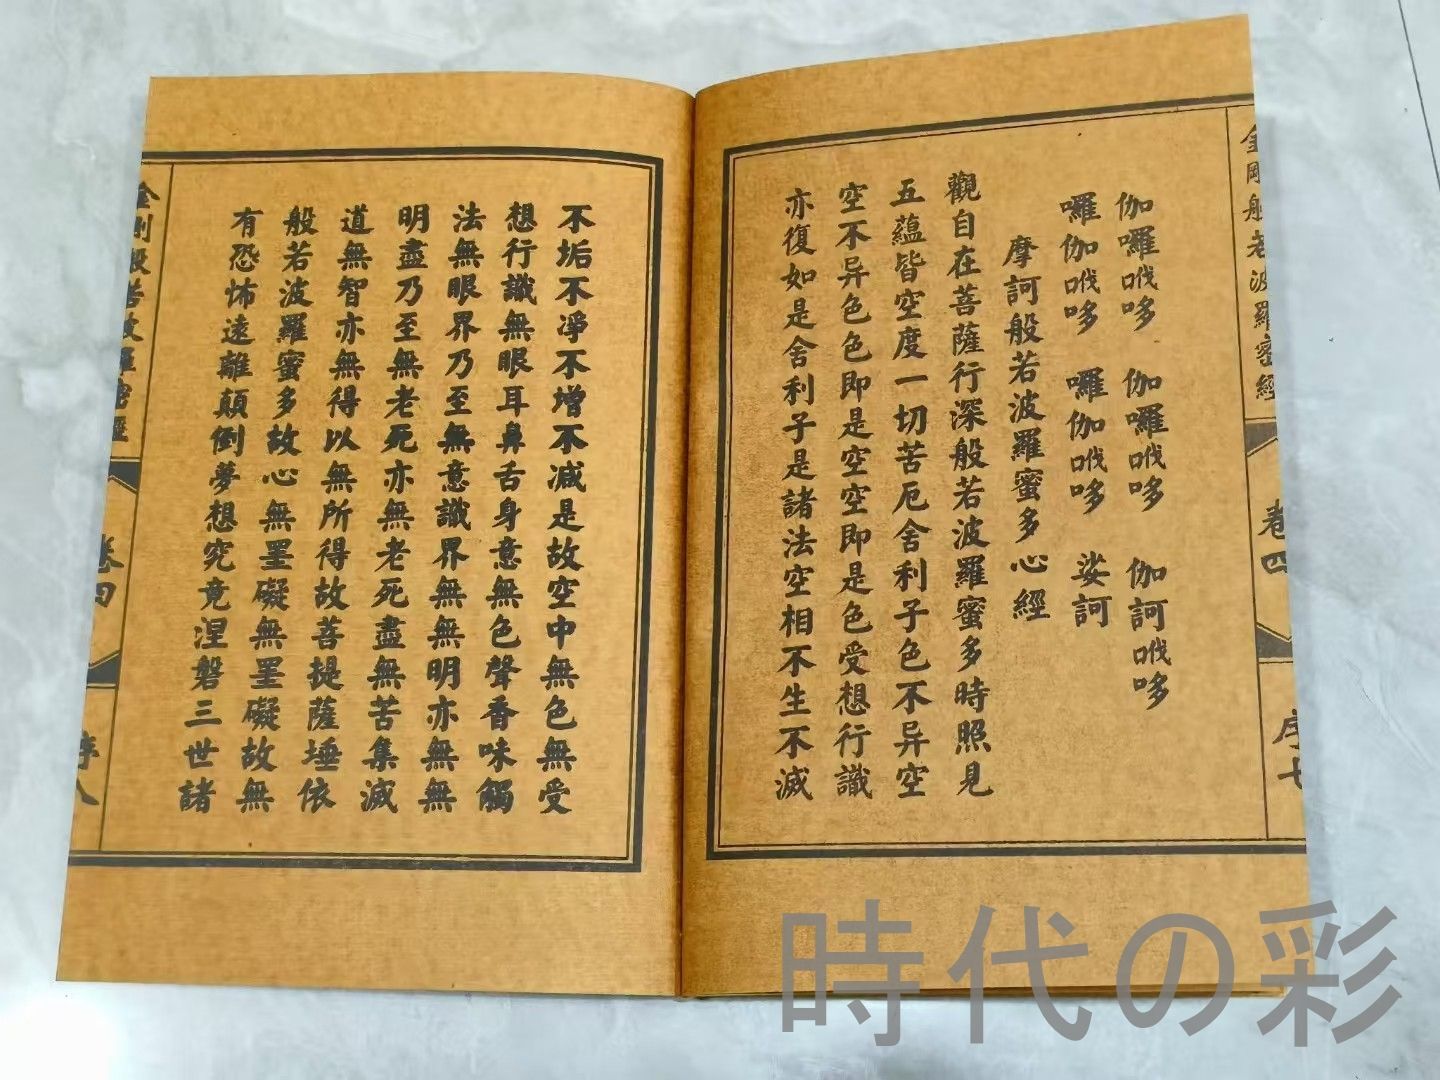 金剛般若波羅蜜經
卷四
序七
伽囉哦哆 伽囉哦哆 伽訶哦哆
囉伽哦哆 囉伽哦哆 娑訶
摩訶般若波羅蜜多心經
觀自在菩薩行深般若波羅蜜多時照見
五蘊皆空度一切苦厄舍利子色不异空
空不异色色即是空空即是色受想行識
亦復如是舍利子是諸法空相不生不滅
不垢不凈不增不减是故空中無色無受
想行識無眼耳鼻舌身意無色聲香味觸
法無眼界乃至無意識界無無明亦無無
明盡乃至無老死亦無老死盡無苦集滅
道無智亦無得以無所得故菩提薩埵依
般若波羅蜜多故心無罣礙無罣礙故無
有恐怖遠離顛倒夢想究竟涅磐三世諸
金剛般若波羅蜜經
卷四
序八
時代の彩